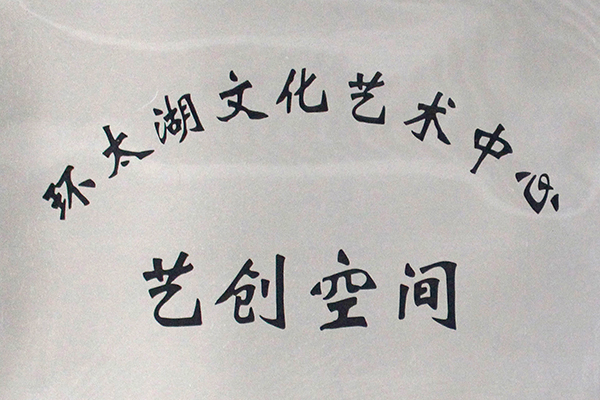 环太湖文化艺术中心
艺创空间